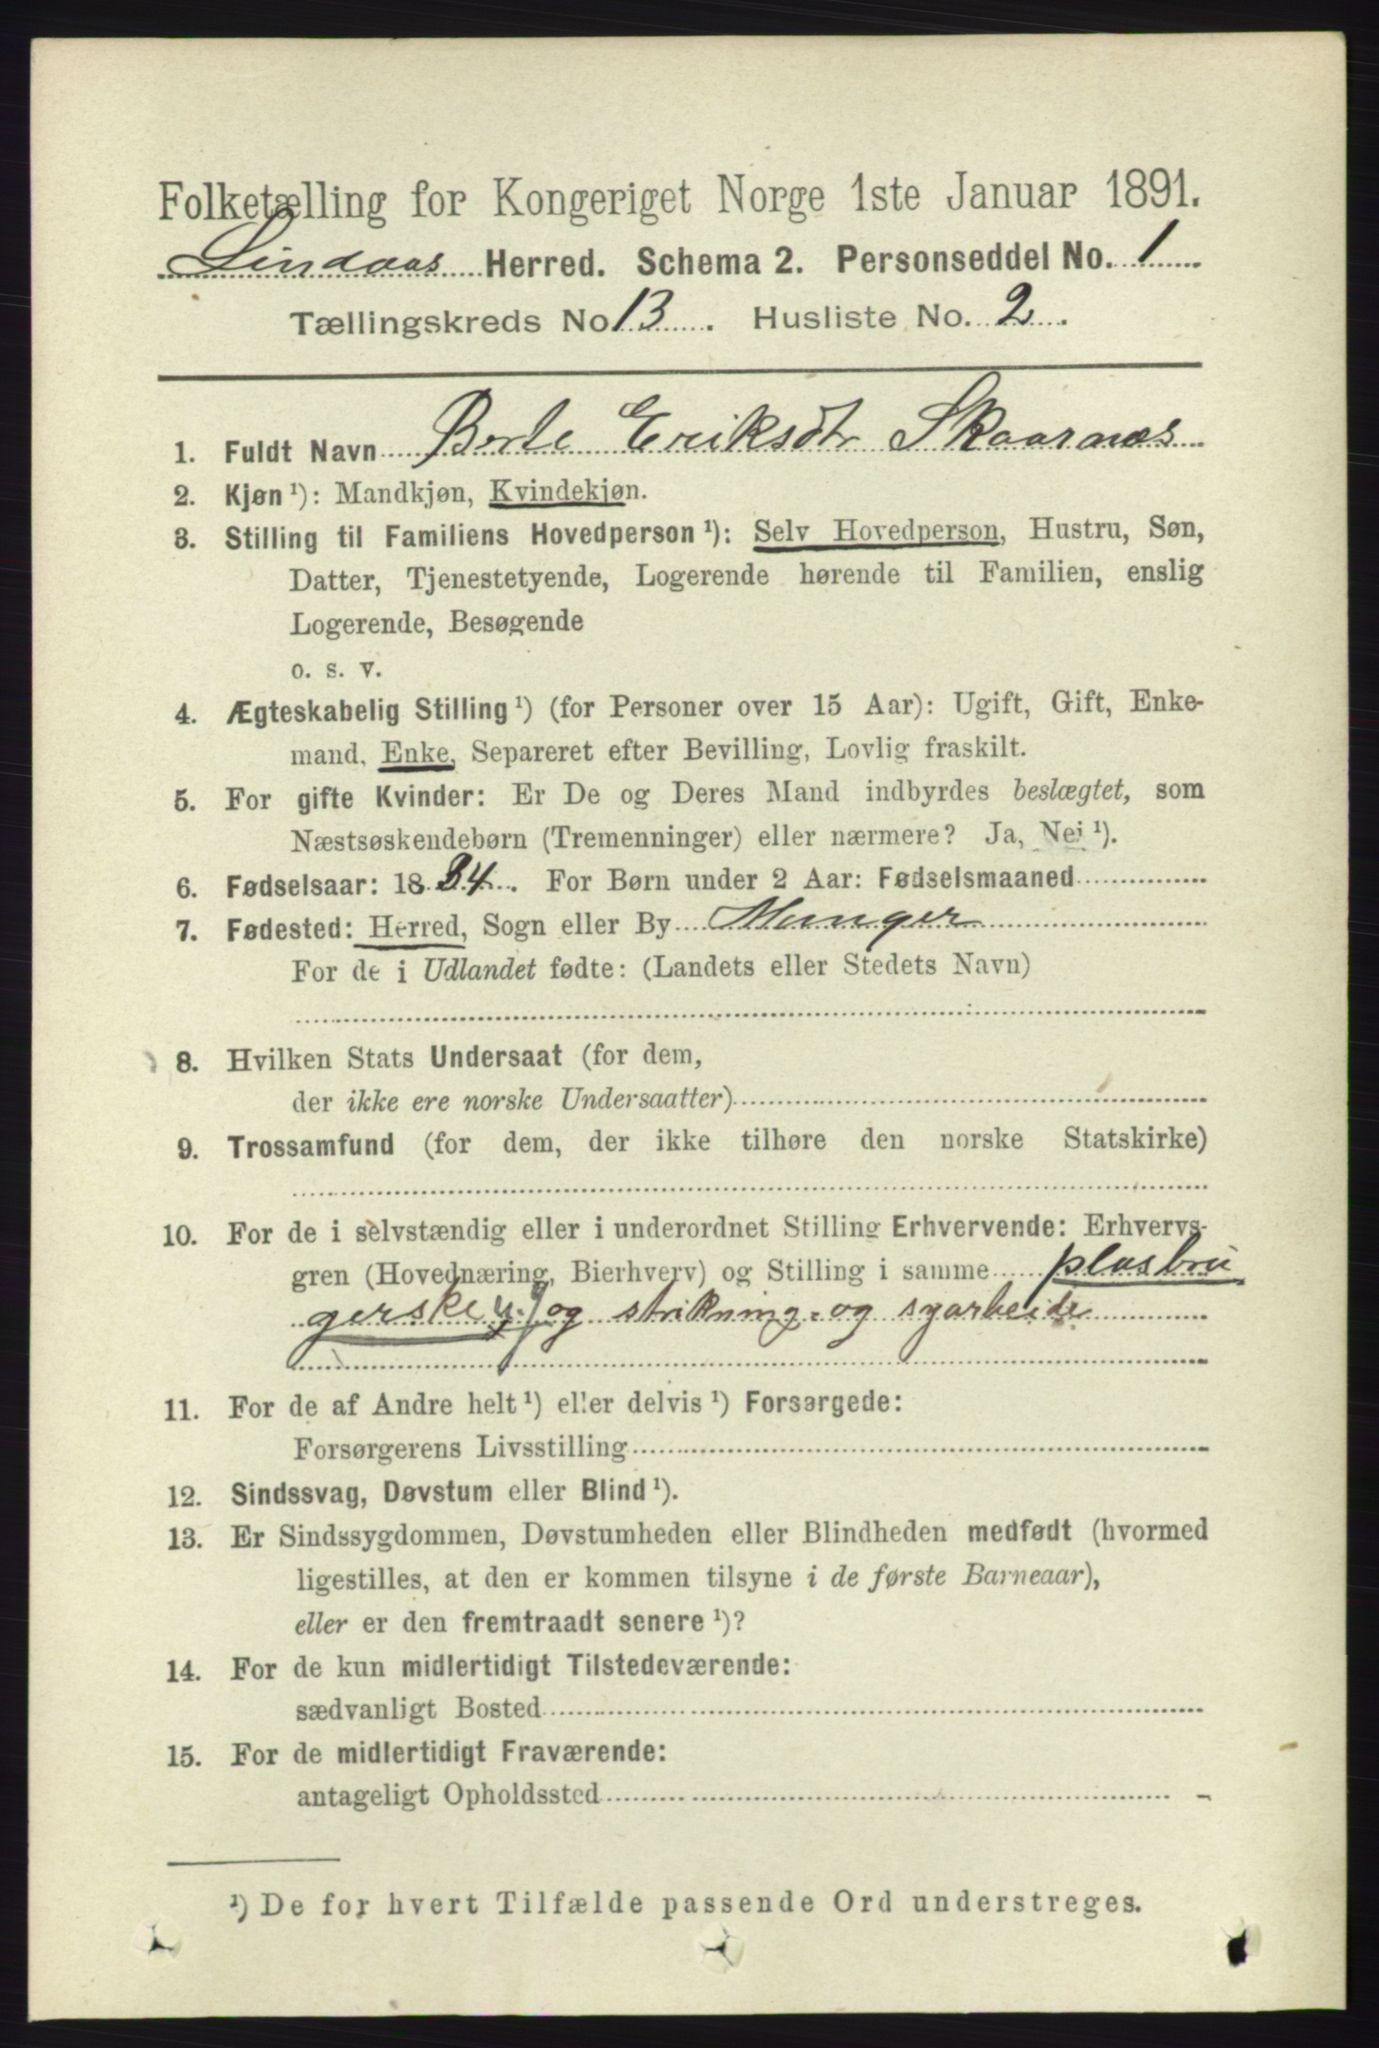 Folketælling for Kongeriget Norge 1ste Januar 1891.
Lindaas Herred. Schema 2. Personseddel No. 1
Tællingskreds No 13. Husliste No. 2.
1. Fuldt Navn Berte Eriksdtr Skaarnes
2. Kjøn ¹): Mandkjøn, Kvindekjøn.
3. Stilling til Familiens Hovedperson ¹): Selv Hovedperson, Hustru, Søn,
Datter, Tjenestetyende, Logerende hørende til Familien, enslig
Logerende, Besøgende
o. s. v.
4. Ægteskabelig Stilling ¹) (for Personer over 15 Aar): Ugift, Gift, Enke-
mand, Enke, Separeret efter Bevilling, Lovlig fraskilt.
5. For gifte Kvinder: Er De og Deres Mand indbyrdes beslægtet, som
Næstsøskendebørn (Tremenninger) eller nærmere? Ja, Nei ¹).
6. Fødselsaar: 1834. For Børn under 2 Aar: Fødselsmaaned
7. Fødested: Herred, Sogn eller By Manger
For de i Udlandet fødte: (Landets eller Stedets Navn)
8. Hvilken Stats Undersaat (for dem,
der ikke ere norske Undersaatter)
9. Trossamfund (for dem, der ikke tilhøre den norske Statskirke)
10. For de i selvstændig eller i underordnet Stilling Erhvervende: Erhvervs-
gren (Hovednæring, Bierhverv) og Stilling i samme plasbru
gerske og strikning- og syarbeide
11. For de af Andre helt ¹) eller delvis ¹) Forsørgede:
Forsørgerens Livsstilling
12. Sindssvag, Døvstum eller Blind ¹).
13. Er Sindssygdommen, Døvstumheden eller Blindheden medfødt (hvormed
ligestilles, at den er kommen tilsyne i de første Barneaar),
eller er den fremtraadt senere ¹)?
14. For de kun midlertidigt Tilstedeværende:
sædvanligt Bosted
15. For de midlertidigt Fraværende:
antageligt Opholdssted
¹) De for hvert Tilfælde passende Ord understreges.